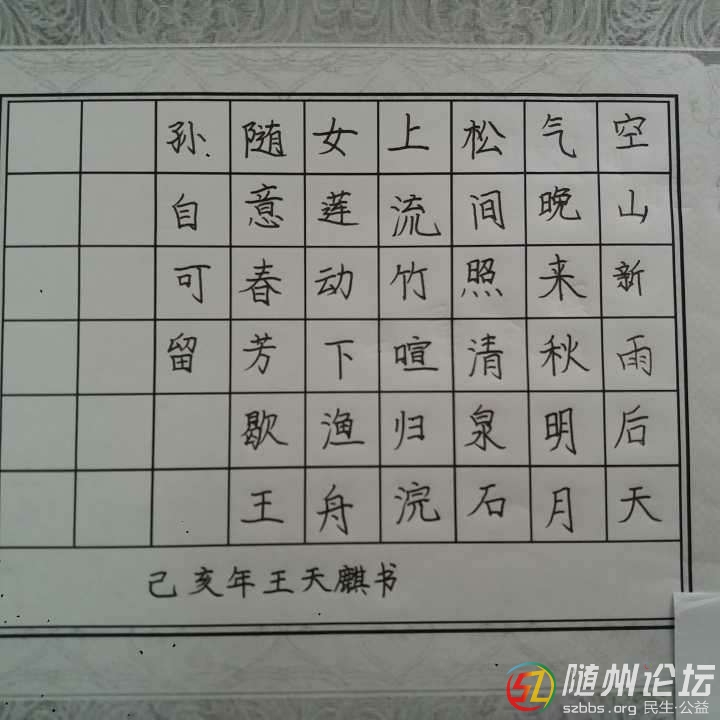 空山新雨后天
气晚来秋明月
松间照清泉石
上流竹喧归浣
女莲动下渔舟
随意春芳歇王
孙自可留
己亥年王天麒书
随州论坛
szbbs.org 民生·公益